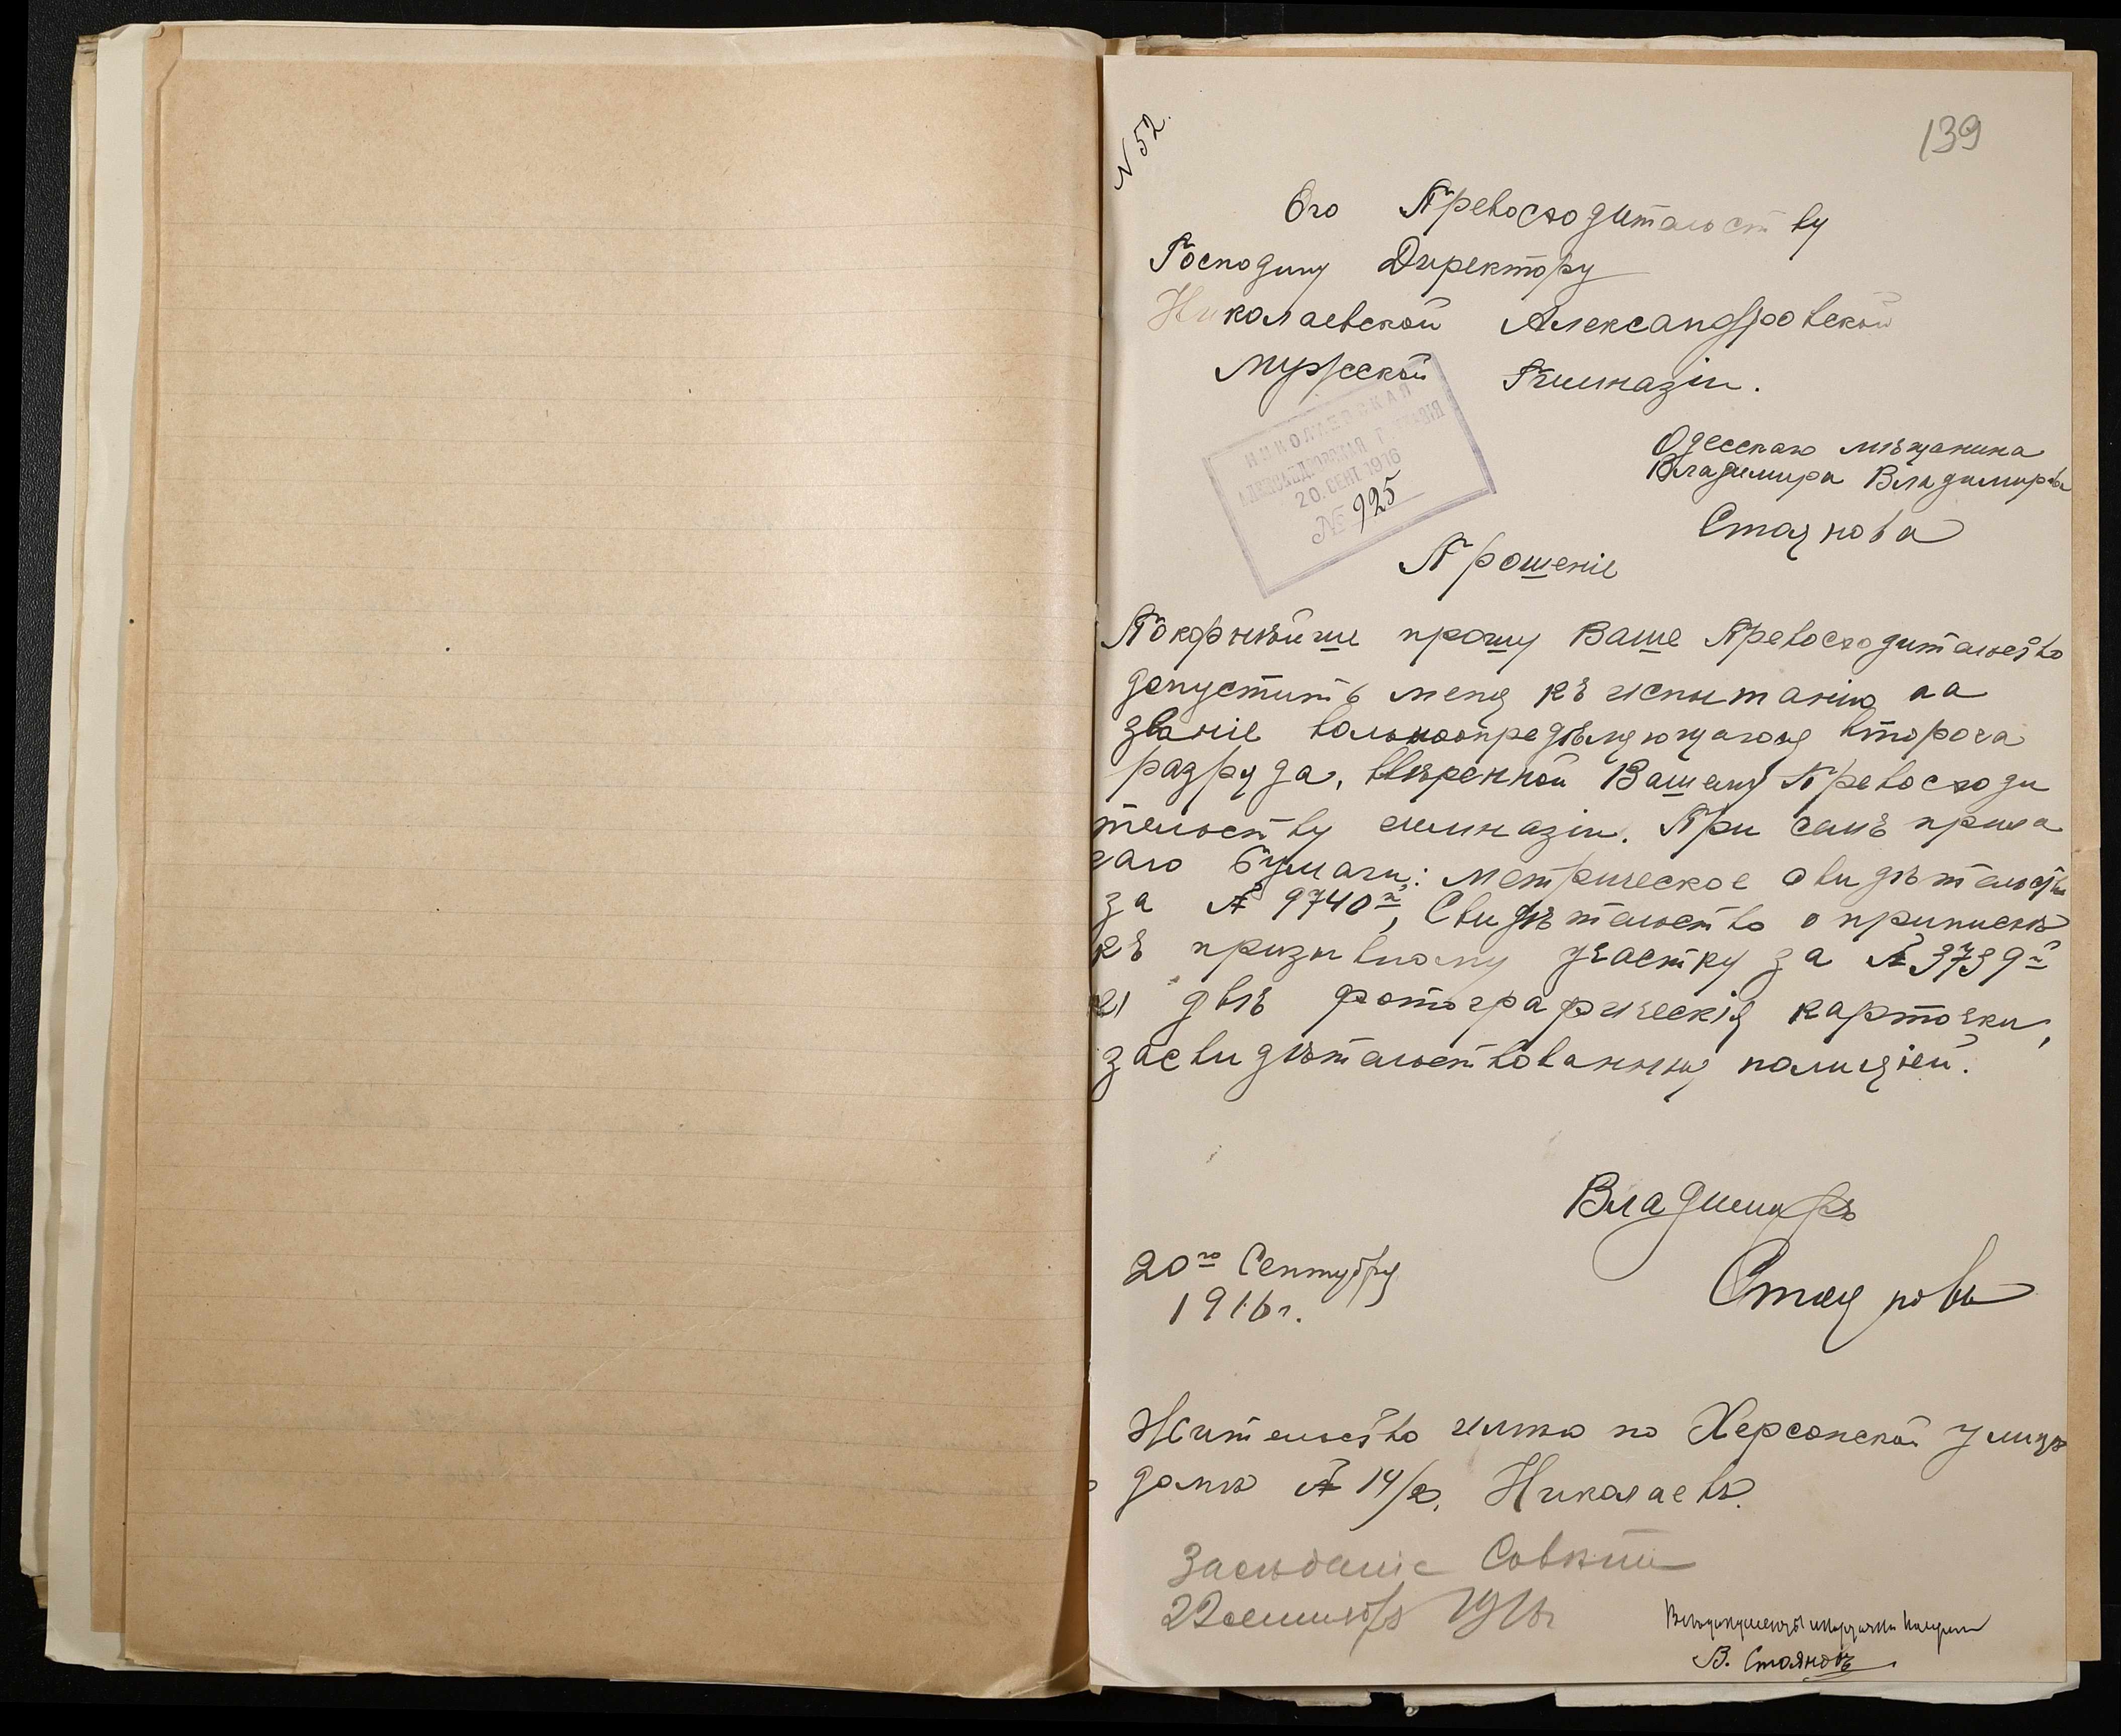 N 52.
139
Его Превосходительству
Господину Директору
Николаевской Александровской
Мужской Гимназіи.
НИКОЛАЕВСКАЯ
АЛЕКСАНДРОВСКАЯ ГИМНАЗІЯ
20. СЕНТ 1916
№ 925
Одесскаго мѣщанина
Владимира Владимирова
Стоянова
Прошеніе
Покорнѣйше прошу Ваше Превосходительство
допустить меня къ испытанію на
званіе вольноопредѣляющагося второго
разряда, ввѣренной Вашему Превосходи
тельству гимназіи. При семъ прила
гаю бумаги: Метрическое свидѣтельство
за № 9740й, Свидѣтельство о припискѣ
къ призывному участку за № 3739й
и двѣ фотографическія карточки,
засвидѣтельствованныя полиціей.
Владимиръ
20го Сентября
Стояновъ
1916г.
Жительство имѣю по Херсонской улицѣ
домъ № 14/2. Николаевъ.
Засѣданіе Совѣта
22 сентября 1916г
В. Стояновъ